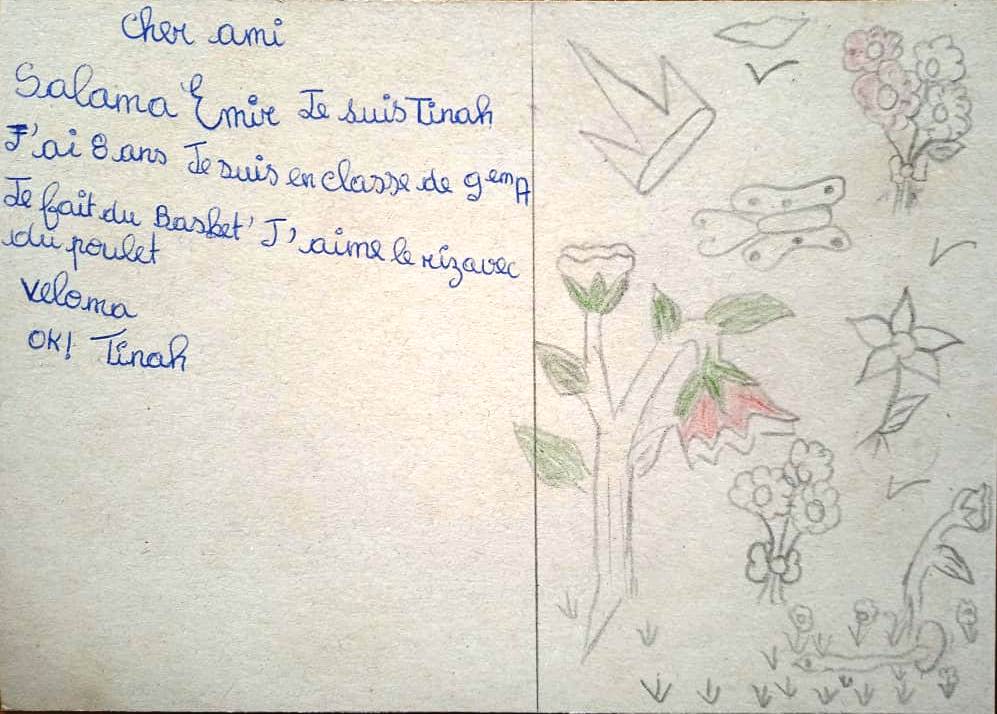 Cher ami
Salama Emir Je suis Tinah
J'ai 8 ans Je suis en classe de 9em A
Je fait du Basket' J'aime le riz avec
du poulet
veloma
OK! Tinah